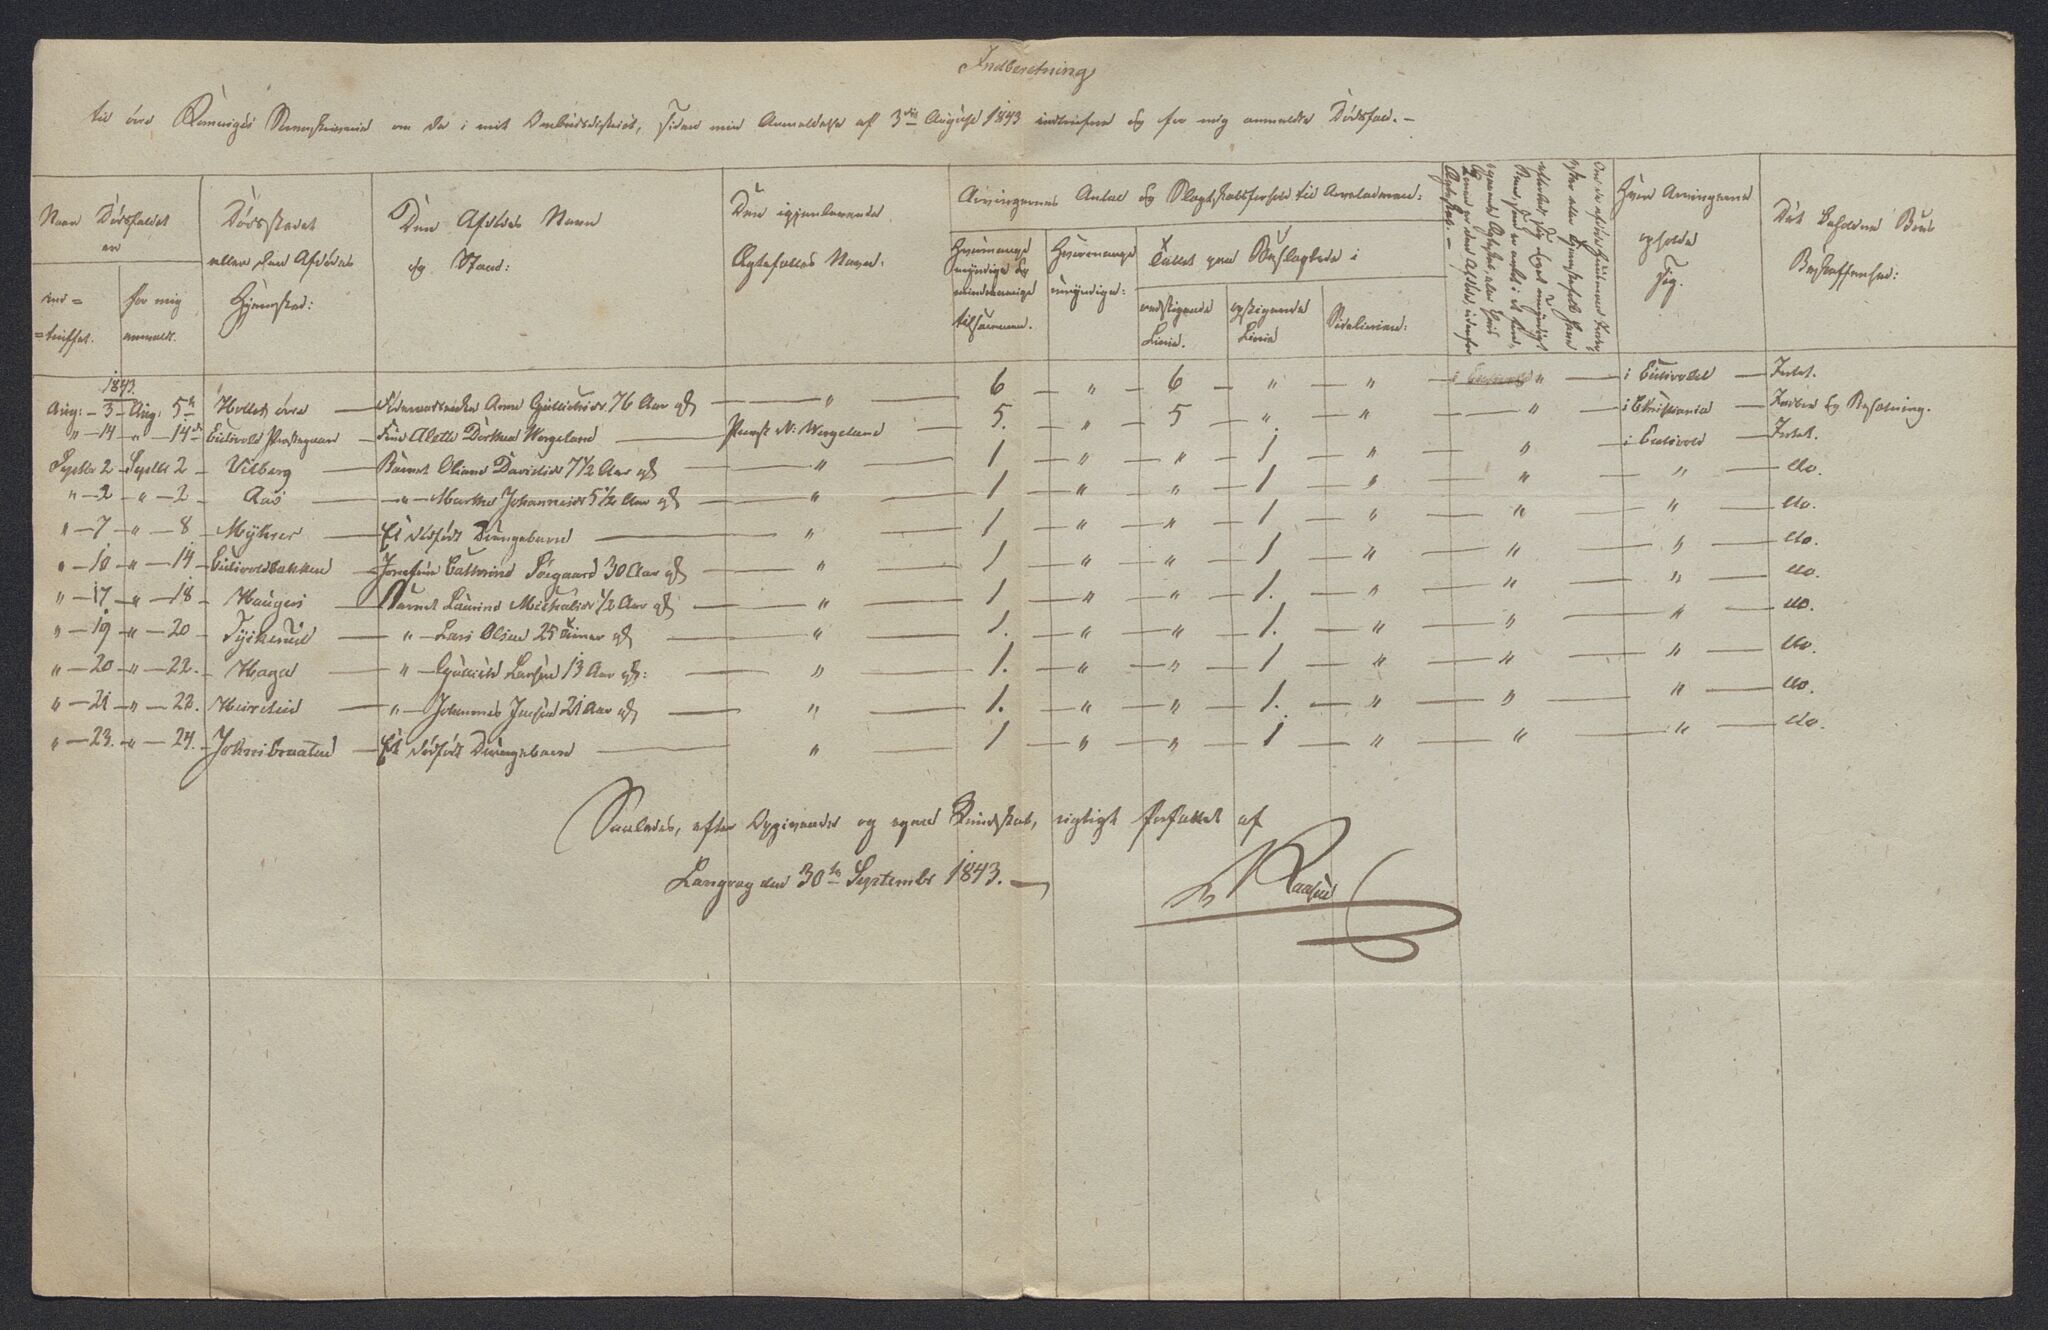 Indberetning
til øvre Romeriges Sorenskriveri om de i mit Ombudsdistrict, siden min Anmeldelse af 3die August 1843 indtrufne og for mig anmeldte Dødsfald. –
Naar Dødsfaldet er
ind= =truffet.
for mig anmeldt.
Dødsstedet eller den Afdødes Hjemsted:
Den Afdødes Navn og Stand:
Den igjenlevende Ægtefælles Navn:
Arvingernes Antal og Slægtskabsforhold til Arveladeren:
Hvormange myndige og mindreaarige tilsammen.
Hvormange umyndige:
Tallet paa Beslægtede i
nedstigende Linie.
opstigende Linie
Sidelinien:
Hvor Arvingerne opholde sig.
Det beholdne Boes Beskaffenhed:
1843
Aug: – 3 – Aug: 5te Holtet øvre — Anne Gulliksdr 76 Aar gl — " — 6 — " — 6 — " — " — " — i Eidsvold — Intet.
" – 14 – " – 14de Eidsvolds Præstegaard – Frue Alette Dorthea Wergeland — Provst N: Wergeland — 5. — " — 5 — " — " — " — i Christiania — Indbo og Besætning.
Septbr 2 – Septbr 2 – Vilberg — Barnet Oliane Davidsdr 7 1/2 Aar gl — " — 1 — " — " — 1 — " — " — i Eidsvold — Intet.
" – 2 – " – 2 – Aas — " – Marthe Johannesdr 5 1/2 Aar gl — " — 1 — " — " — 1 — " — " — " — do.
" – 7 – " – 8 – Myhrer — Et dødfødt Drengebarn — " — 1 — " — " — 1 — " — " — " — do.
" – 10 – " – 14 – Eidsvoldbakken – Josefine Cathrine Soegaard 30 Aar gl — " — 1 — " — " — 1 — " — " — " — do.
" – 17 – " – 18 – Hauger — Barnet Laurine Michalsdr 1/2 Aar gl — " — 1 — " — " — 1. — " — " — " — do.
" – 19 – " – 20 – — " – Lars Olsen 25 Timer gl — " — 1. — " — " — 1. — " — " — " — do.
" – 20 – " – 22. – Haga — " – Gullich Larsen 13 Aar gl: — " — 1. — " — " — 1 — " — " — " — do.
" – 21 – " – 22. — " – Johannes Jensen 21 Aar gl — " — 1. — " — " — 1. — " — " — " — do.
" – 23. – " – 24. – Johnsbraaten – Et dødfødt Drengebarn — " — 1 — " — " — 1 — " — " — " — do.
Saaledes, efter Opgivende og egen Kundskab, rigtigt forfattet af
Langvag den 30te September 1843. —